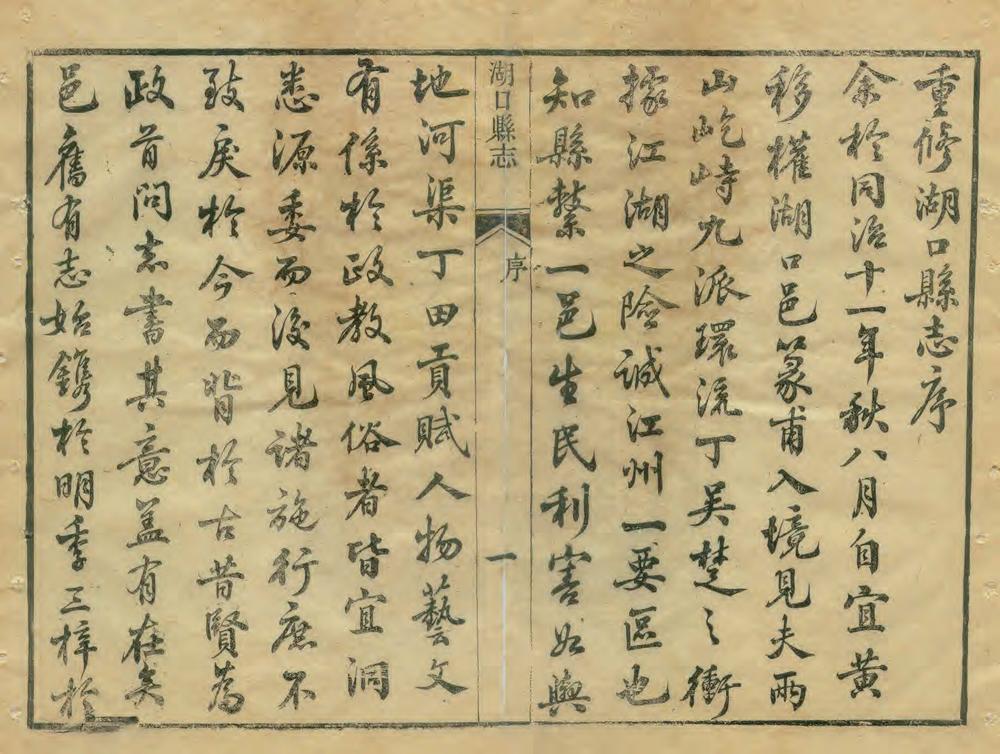 重修湖口縣志序
余於同治十一年秋八月自宜黃
移權湖口邑篆甫入境見夫兩
山屹峙九派環流丁吳楚之衝
據江湖之險誠江州一要區也
知縣繫一邑生民利害如輿
湖口縣志
序
一
地河渠丁田貢賦人物藝文
有係於政教風俗者皆宜洞
悉源委而後見諸施行庶不
致戾於今而背於古昔賢為
政首問志書其意蓋有在矣
邑舊有志始鐫於明季三梓於